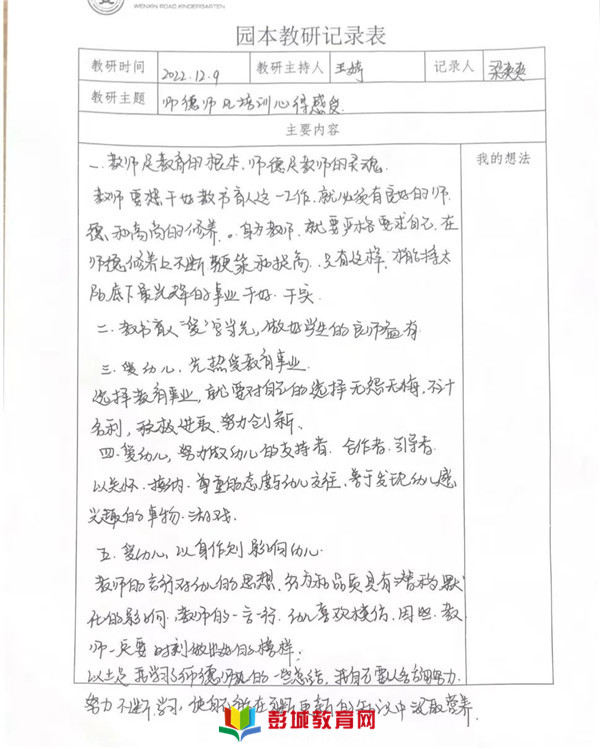 WENXIN ROAD KINDERGARTEN
园本教研记录表
教研时间 2022.12.9 教研主持人 王婷 记录人 梁爽爽
教研主题 师德师风培训心得感受
主要内容 我的想法
一、教师是教育的根本,师德是教师的灵魂.
教师要想干好教书育人这一工作,就必须有良好的师
德和高尚的修养。身为教师,就要严格要求自己,在
师德修养上不断鞭策和提高,只有这样,才能将太
阳底下最光辉的事业干好、干实.
二、教书育人"爱"字当先,做好学生的良师益友
三、爱幼儿,先热爱教育事业.
选择教育事业,就要对自己的选择无怨无悔,不计
名利,积极进取,努力创新、
四、爱幼儿,努力做幼儿的支持者、合作者、引导者.
以关怀、接纳、尊重的态度与幼儿交往,善于发现幼儿感
兴趣的事物、游戏.
五、爱幼儿,以身作则影响幼儿.
教师的言行对幼儿的思想、行为和品质具有潜移默
化的影响,教师的一言一行,幼儿喜欢模仿,因此,教
师一定要时刻做出好的榜样,
以上是我学习师德师风的一些总结,我自己要认努力
努力不断学习,使自己在更新的知识中汲取营养.
彭城教育网